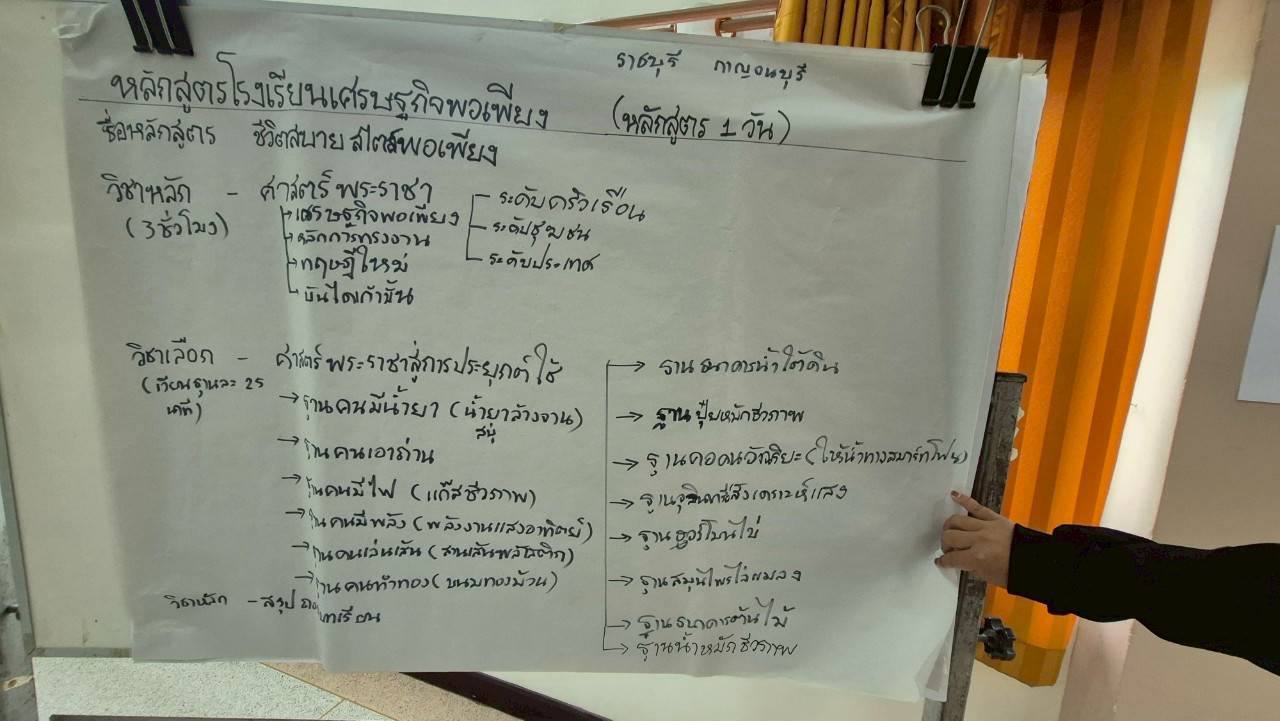 ราชบุรี กาญจนบุรี
หลักสูตรโรงเรียนเศรษฐกิจพอเพียง (หลักสูตร 1 วัน)
ชื่อหลักสูตร ชีวิตสบาย สไตล์พอเพียง
วิชาหลัก - ศาสตร์พระราชา
(3 ชั่วโมง)
→ เศรษฐกิจพอเพียง
→ หลักการทรงงาน
→ ทฤษฎีใหม่
บันไดเก้าขั้น
- ระดับครัวเรือน
- ระดับชุมชน
- ระดับประเทศ
วิชาเลือก - ศาสตร์พระราชาสู่การประยุกต์ใช้
(เรียนฐานละ 25
นาที)
→ ฐานคนมีน้ำยา (น้ำยาล้างจาน)
สบู่
→ ฐานคนเอาถ่าน
→ ฐานคนมีไฟ (แก๊สชีวภาพ)
→ ฐานคนมีพลัง (พลังงานแสงอาทิตย์)
→ ฐานคนเล่นเส้น (สานเส้นพลาสติก)
→ ฐานคนทำทอง (ขนมทองม้วน)
→ ฐานธนาคารน้ำใต้ดิน
→ ฐานปุ๋ยหมักชีวภาพ
→ ฐานคอคนอัจฉริยะ (ให้น้ำทางสมาร์ทโฟน)
→ ฐานจุลินทรีย์สังเคราะห์แสง
→ ฐานฮอร์โมนไข่
→ ฐานสมุนไพรไล่แมลง
→ ฐานธนาคารต้นไม้
→ ฐานน้ำหมักชีวภาพ
วิชาหลัก - สรุป
บทเรียน